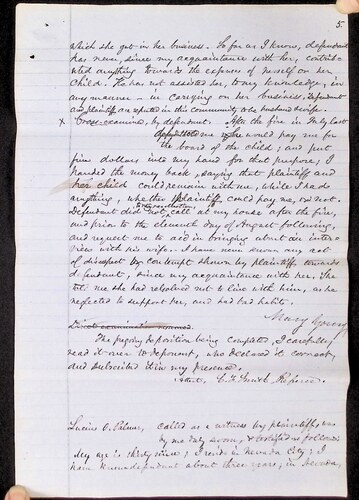 5.
which she got in her business. So far as I know, defendant
has never, since my acquaintance with her, contrib-
uted anything towards the expenses of herself or her
child. He has not assisted her, to my knowledge, in
any manner in carrying on her business, defendant
and plaintiff are reputed in this community to be husband & wife.
x Cross-examined, by defendant. After the fire in July last
defendt told me he would pay me for
the board of the child; and put
five dollars into my hand for that purpose; I
handed the money back, saying that plaintiff and
her child could remain with me, while I had
anything, whether plaintiff could pay me, or not.
Defendant did not call at my house after the fire,
and prior to the eleventh day of August following,
and request me to aid in bringing about an inter-
view with his wife. I have never known any act
of disrespect or contempt shown by plaintiff towards
defendant, since my acquaintance with her; she
told me she had resolved not to live with him, as he
neglected to support her, and had bad habits.
Mary
Direct examination resumed.
The foregoing deposition being completed, I carefully
read it over to deponent, who declared it correct,
and subscribed it in my presence.
Attest, Smith, Referee.
Lucius O. Palmer, called as a witness by plaintiff, was
by me duly sworn, & testified as follows:
My age is thirty nine; I reside in Nevada City; I
have known defendant about three years, in Nevada,